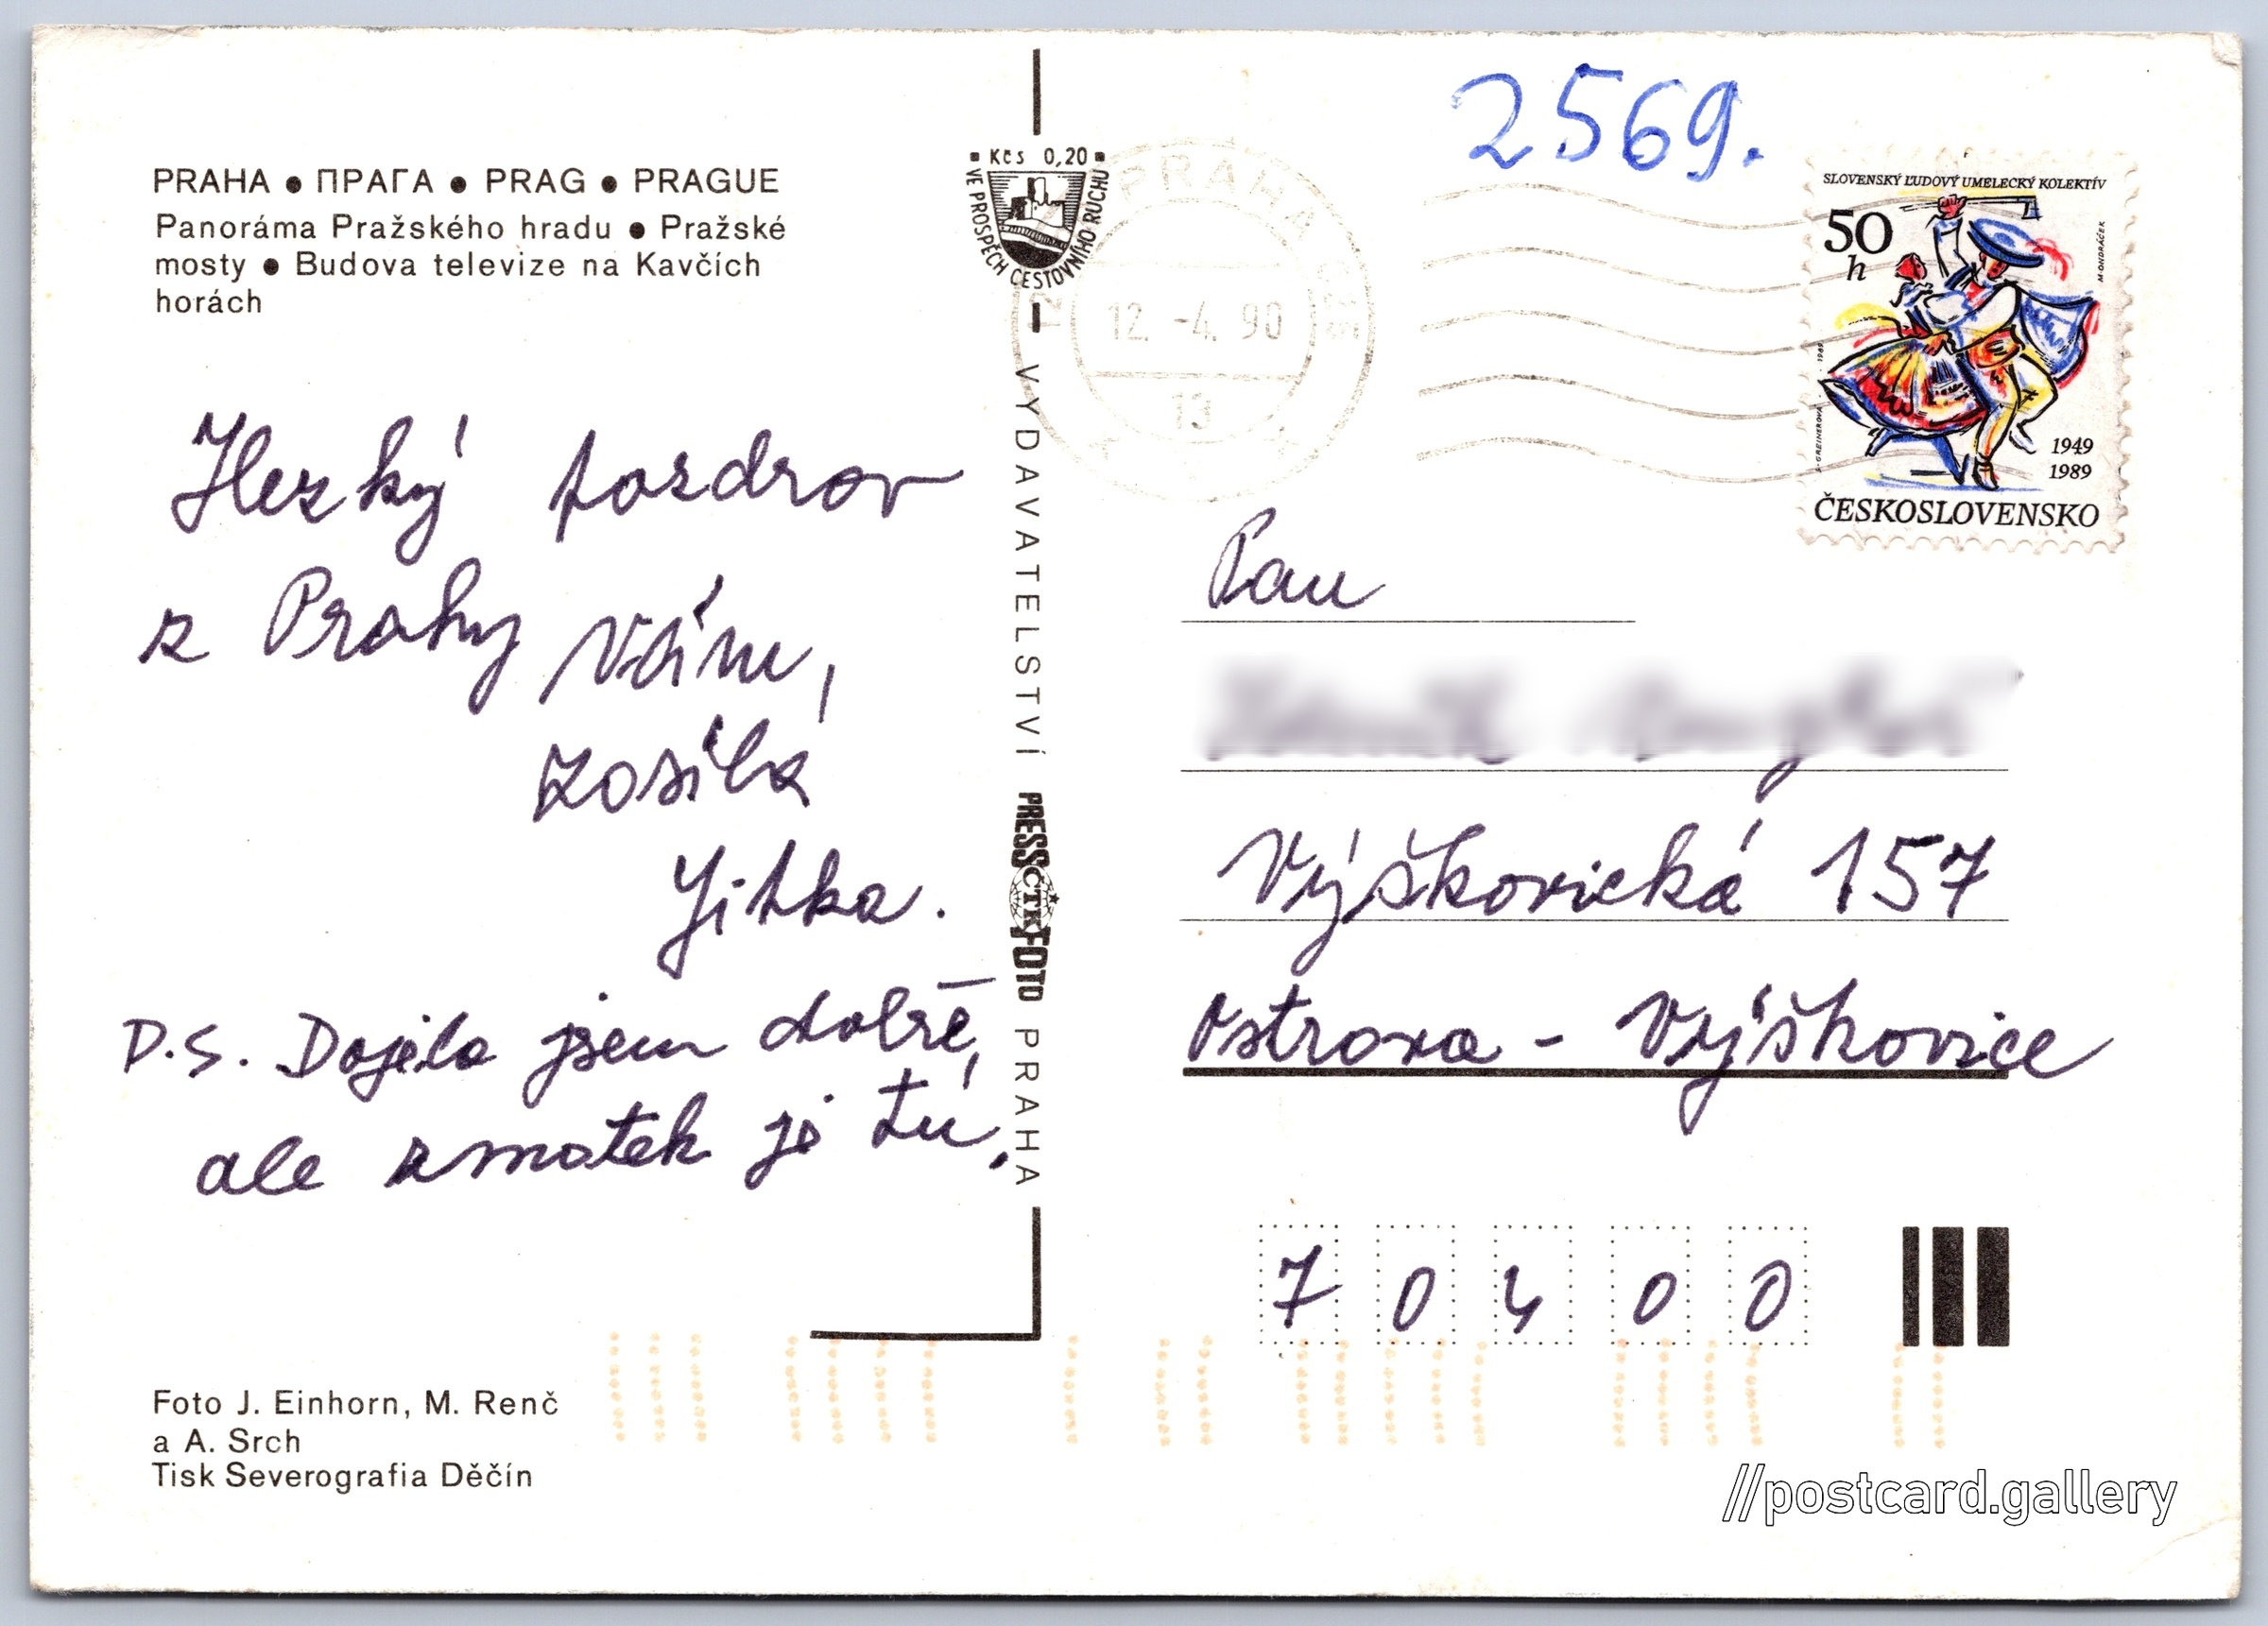 PRAHA • ПРАГА • PRAG • PRAGUE
Panoráma Pražského hradu • Pražské
mosty • Budova televize na Kavčích
horách
Hezký pozdrav
z Prahy Vám,
zasílá
Jitka.
P.S. Dojela jsem dobře,
ale zmatek je tu.
Foto J. Einhorn, M. Renč
a A. Srch
Tisk Severografia Děčín
Kčs 0,20
VE PROSPĚCH CESTOVNÍHO RUCHU
VYDAVATELSTVÍ PRESSFOTO PRAHA
ČTK
2569.
PRAHA
12.-4.90
13
SLOVENSKÝ ĽUDOVÝ UMELECKÝ KOLEKTÍV
50
h
M. ONDRÁČEK
1989
GREINEROVÁ
1949
1989
ČESKOSLOVENSKO
Pan
Výškovická 157
Ostrava - Výškovice
70400
//postcard.gallery